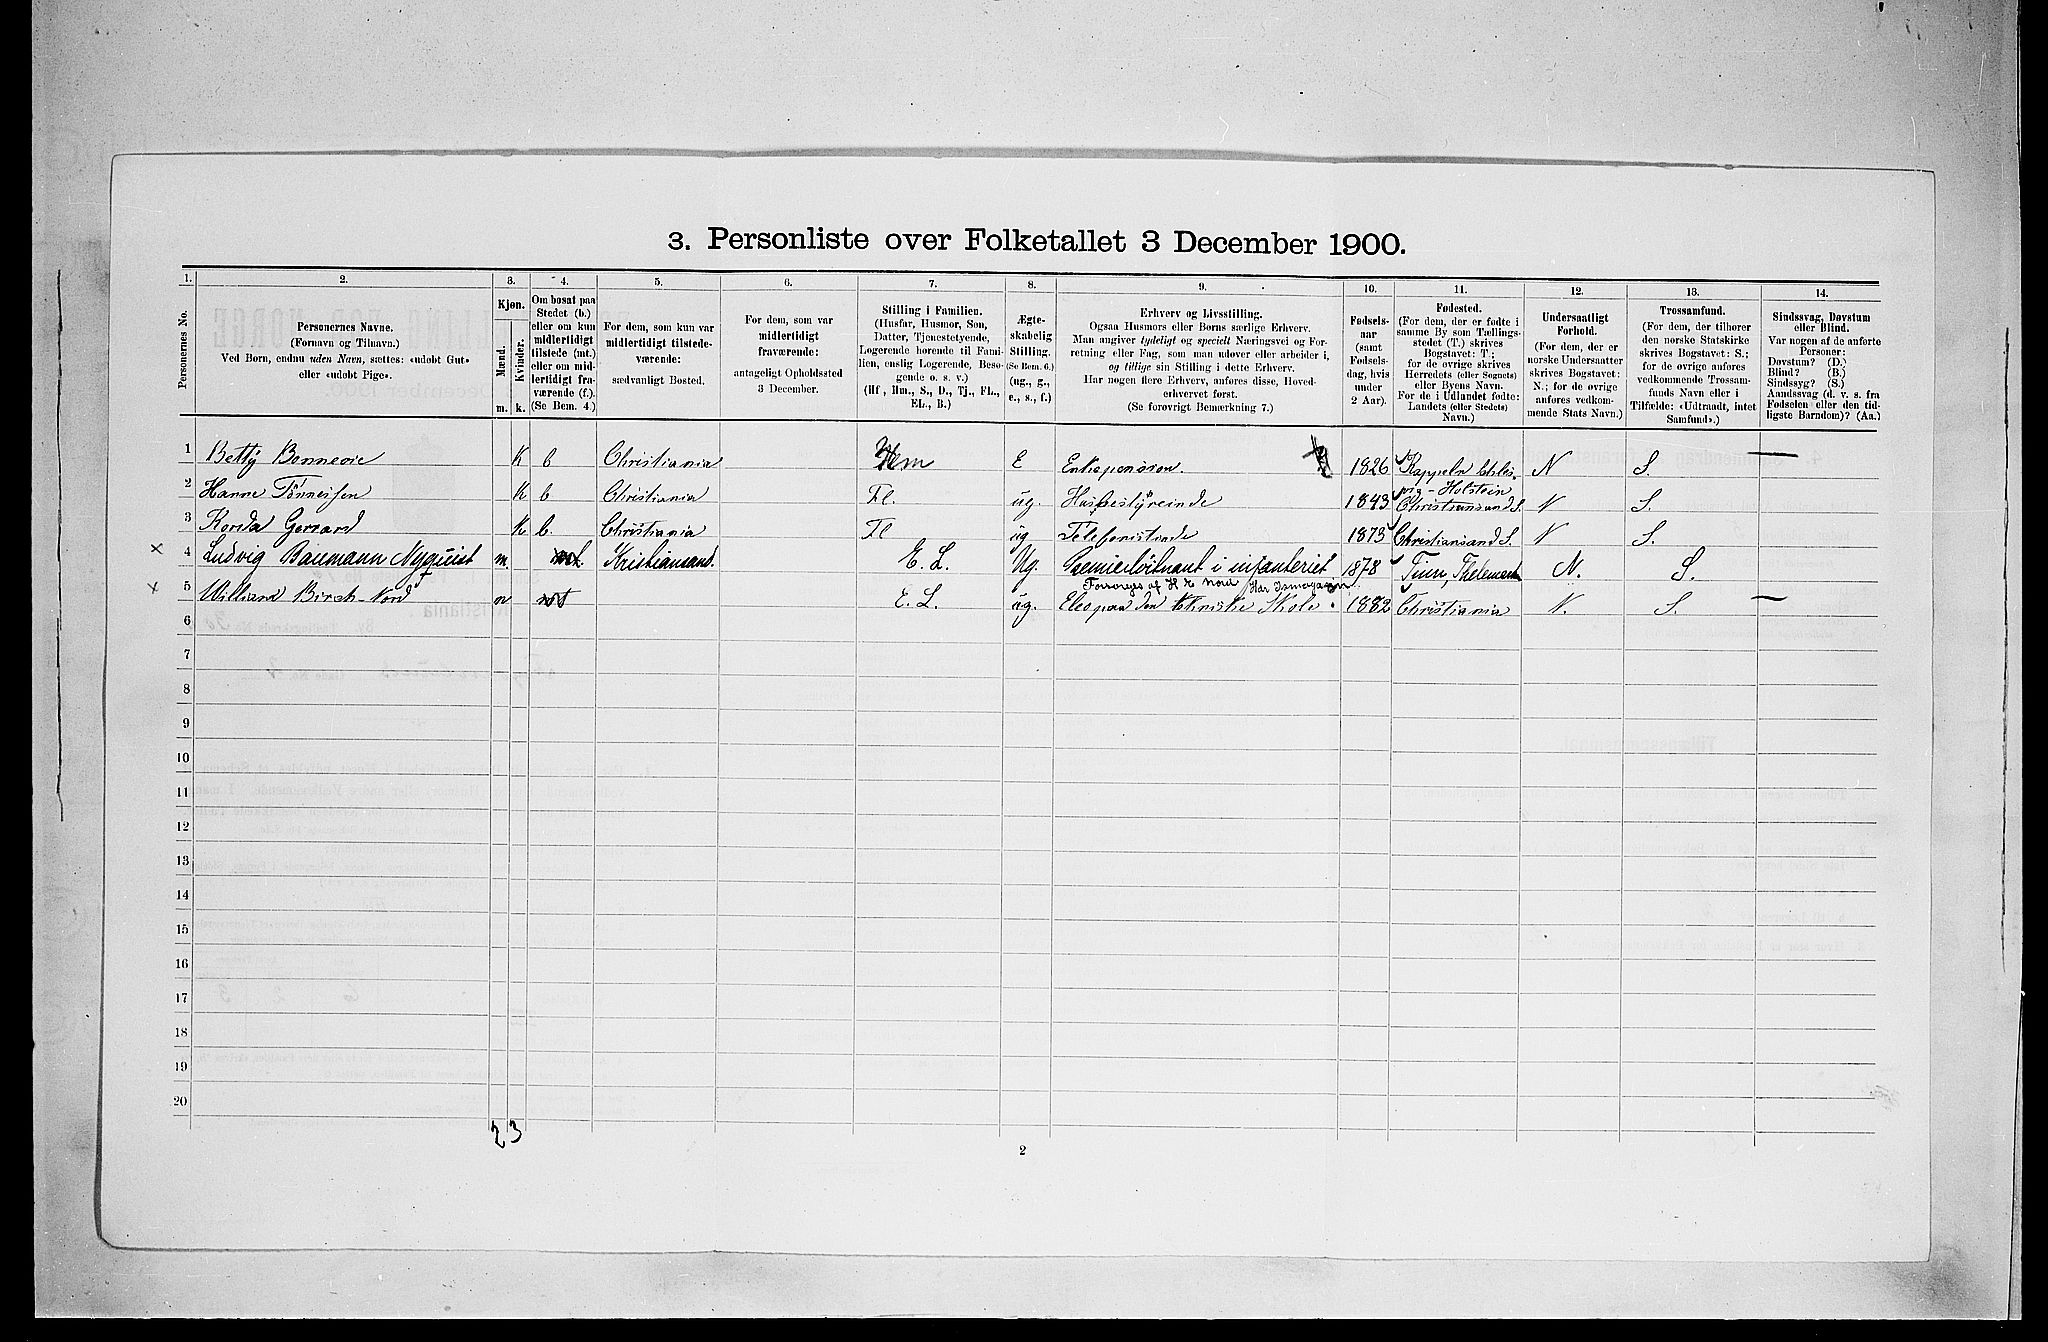 3. Personliste over Folketallet 3 December 1900.
1. 2. 3. 4. 5. 6. 7. 8. 9. 10. 11. 12. 13. 14.
Personernes No.
Personernes Navne.
(Fornavn og Tilnavn.)
Ved Børn, endnu uden Navn, sættes: «udøbt Gut»
eller «udøbt Pige».
Kjøn.
Mænd.
Kvinder.
m. k.
Om bosat paa
Stedet (b.)
eller om kun
midlertidigt
tilstede (mt.)
eller om mid-
lertidigt fra-
værende (f.).
(Se Bem. 4.)
For dem, som kun var
midlertidigt tilstede-
værende:
sædvanligt Bosted.
For dem, som var
midlertidigt
fraværende:
antageligt Opholdssted
3 December.
Stilling i Familien.
(Husfar, Husmor, Søn,
Datter, Tjenestetyende,
Logerende hørende til Fami-
lien, enslig Logerende, Besø-
gende o. s. v.)
(Hf., Hm., S., D., Tj., FL.,
EL., B.)
Ægte-
skabelig
Stilling.
(Se Bem. 6.)
(ug., g.,
e., s., f.)
Erhverv og Livsstilling.
Ogsaa Husmors eller Børns særlige Erhverv.
Man angiver tydeligt og specielt Næringsvei og For-
retning eller Fag, som man udøver eller arbeider i,
og tillige sin Stilling i dette Erhverv.
Har nogen flere Erhverv, anføres disse, Hoved-
erhvervet først.
(Se forøvrigt Bemærkning 7.)
Fødsels-
aar
(samt
Fødsels-
dag, hvis
under
2 Aar).
Fødested.
(For dem, der er fødte i
samme By som Tællings-
stedet (T.) skrives
Bogstavet: T.;
for de øvrige skrives
Herredets (eller Sognets)
eller Byens Navn.
For de i Udlandet fødte:
Landets (eller Stedets)
Navn.)
Undersaatligt
Forhold.
(For dem, der er
norske Undersaatter
skrives Bogstavet:
N.; for de øvrige
anføres vedkom-
mende Stats Navn.)
Trossamfund.
(For dem, der tilhører
den norske Statskirke
skrives Bogstavet: S.;
for de øvrige anføres
vedkommende Trossam-
funds Navn eller i
Tilfælde: «Udtraadt, intet
Samfund».)
Sindssvag, Døvstum
eller Blind.
Var nogen af de anførte
Personer:
Døvstum? (D.)
Blind? (B.)
Sindssyg? (S.)
Aandssvag (d. v. s. fra
Fødselen eller den tid-
ligste Barndom)? (Aa.)
1 Betty Bonnevie K b Christiania Hm E Enkepension. 1826 Kappeln Schles-
vig-Holstein N S. —
2 Hanne Tönnesen K b Christiania Fl. ug. Husbestyreinde 1843 Christiansand S. N S.
3 Gerrard K b. Christiania Fl ug Telefonistinde 1873 Christiansand S. N S.
x 4 Ludvig Baumann Nyquist m. mt. Kristiansand. E. L. Ug. Premierløitnant i infanteriet 1878 Tinn Thelemarken N. S.
Forsørges af
x 5 William Birch-Nord m mt E. L. ug. Elev paa den tekniske Skole. 1882 Christiania N. S. —
6
7
8
9
10
11
12
13
14
15
16
17
18
19
20
2 3
2